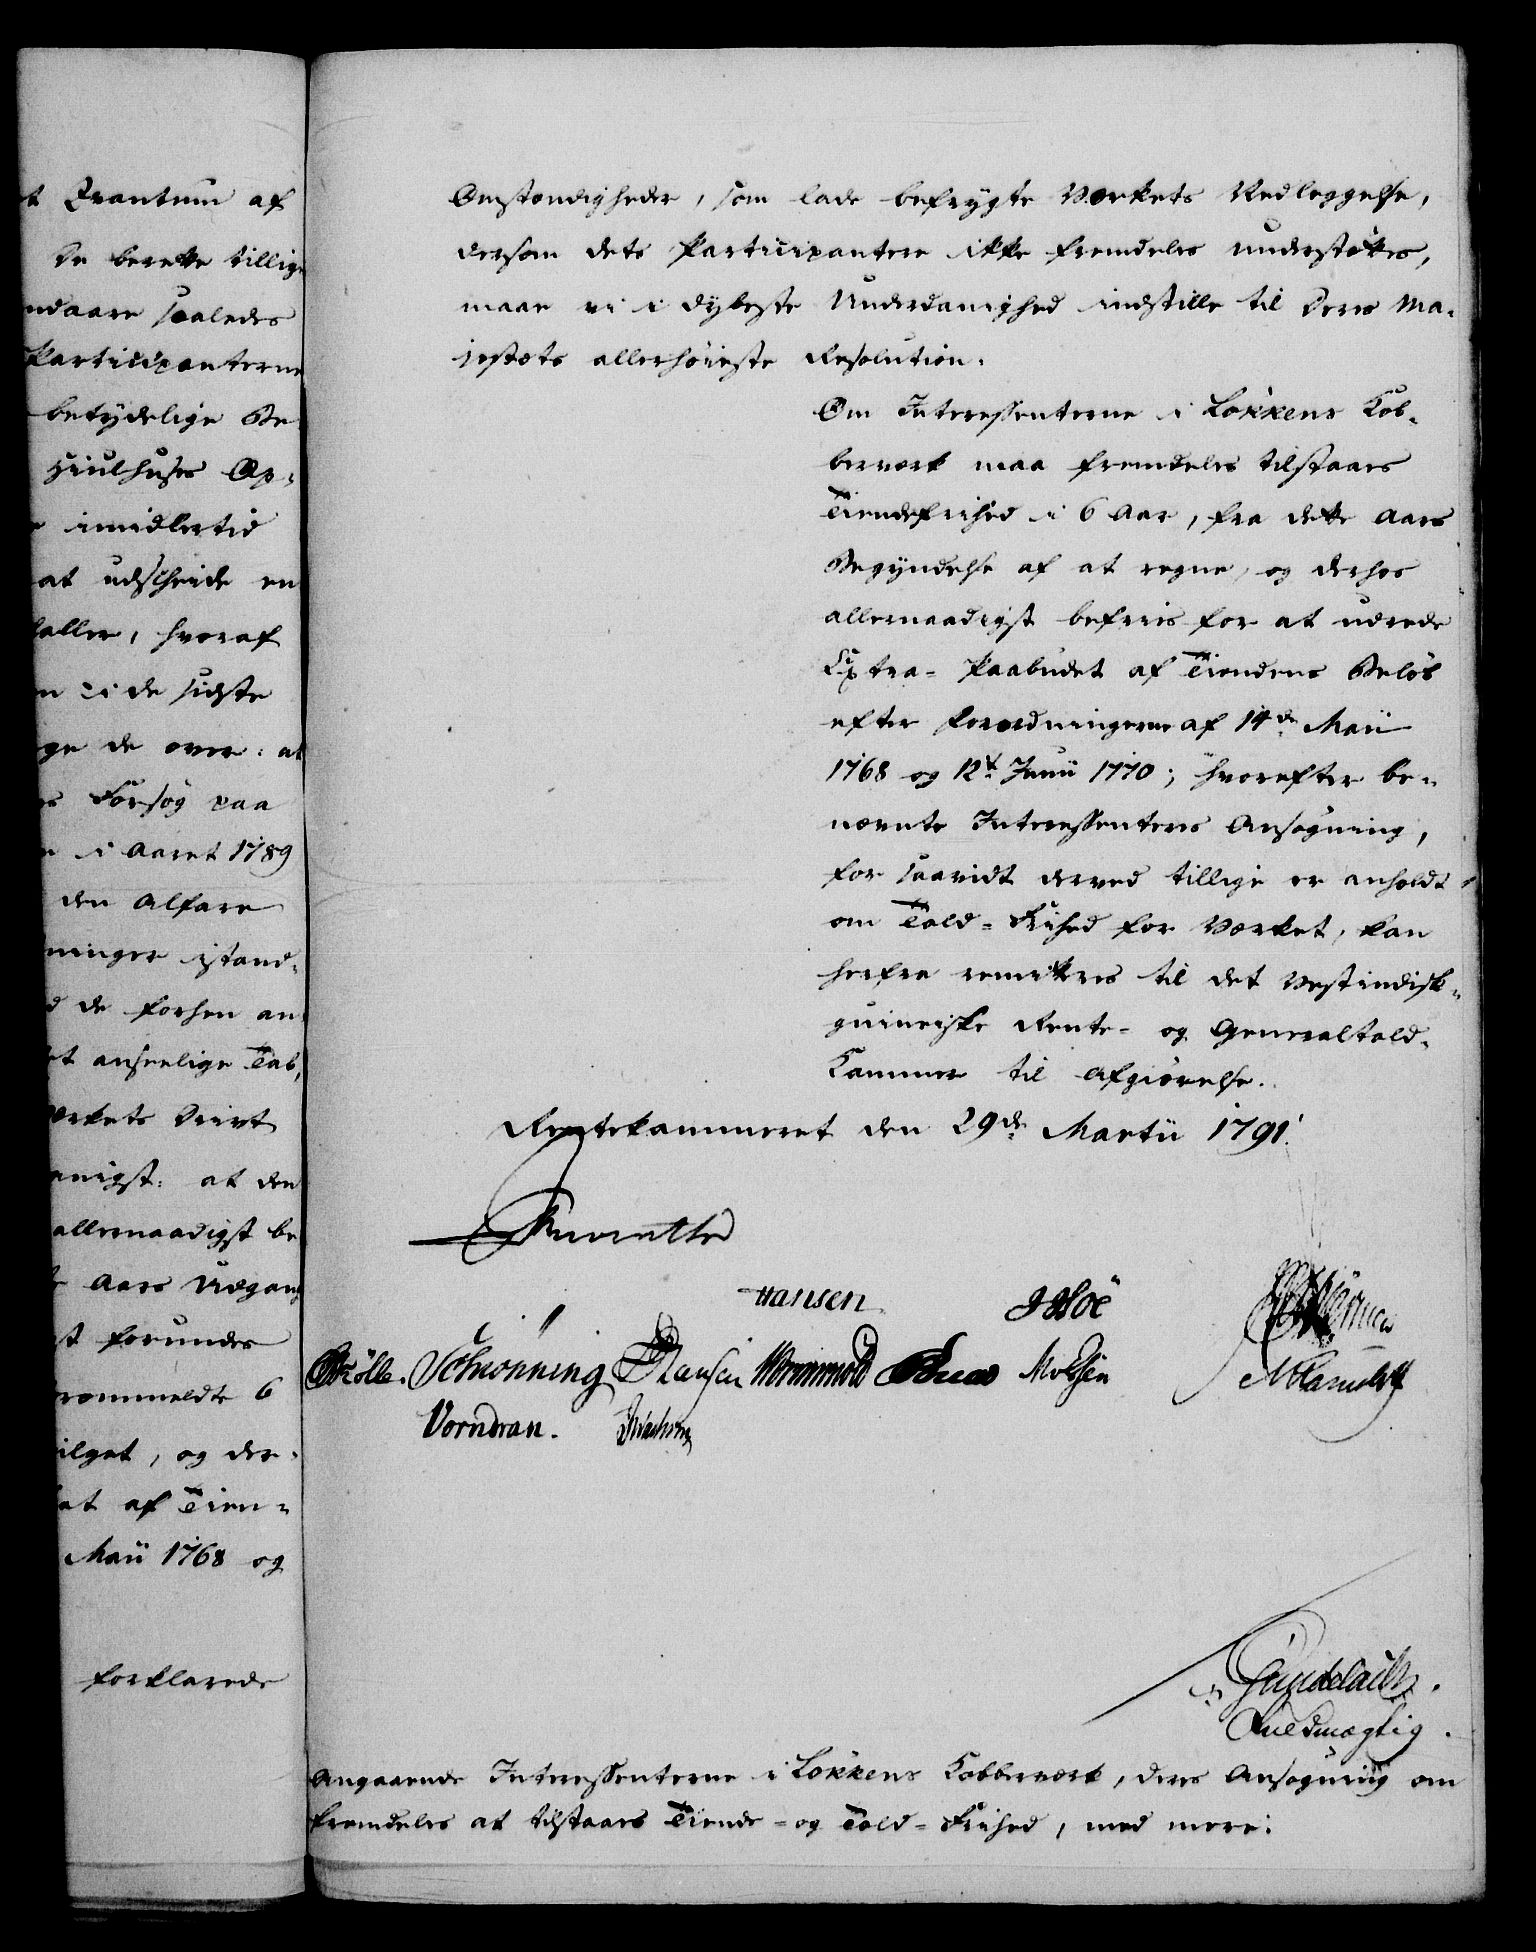 t Qvantum af
De berette tillige
ndaare saaledes
Participanterne
betydelige Be
Hiulhuses Op-
imidlertid
at udskeide en
faller, hvoraf
n i de sidste
ge de over: at
s Forsøg paa
i Aaret 1789
den Alfare
ninger istand-
d de forhen an-
et anseelige Tab,
erkets Drivt
anigst: at den
allernaadigst be
Aars Udgang
st forundes
rommeldte 6
vilget, og der-
at af Tien-
Maii 1768 og
forklarede
Omstændigheder, som lade befrygte Værkets Nedlæggelse,
dersom dets Participantere ikke fremdeles understøttes,
maae vi i dybeste Underdanighed indstille til Deres Ma-
jestæts allerhøieste Resolution:
Om Interessenterne i Løkkens Kob-
berværk maa fremdeles tilstaaes
Tiendefrihed i 6 Aar, fra dette Aars
Begyndelse af at regne, og derhos
allernaadigst befries for at udrede
Extra-Paabudet af Tiendens Beløb
efter Forordningerne af 14de Maii
1768 og 12te Junii 1770; hvorefter be-
nævnte Interessenteres Ansøgning,
for saavidt derved tillige er anholdt
om Told-Frihed for Værket, kan
herfra remitteres til det Vestindisk-
guineiske Rente- og Generaltold-
Kammer til Afgiørelse.
Rentekammeret den 29de Martii 1791.
Hansen
Schiønning Hansen
Vorndran.
Gundelach.
Fuldmægtig.
Angaaende Interessenterne i Løkkens Kobberværk, deres Ansøgning om
fremdeles at tilstaaes Tiende- og Told-Frihed, med mere.